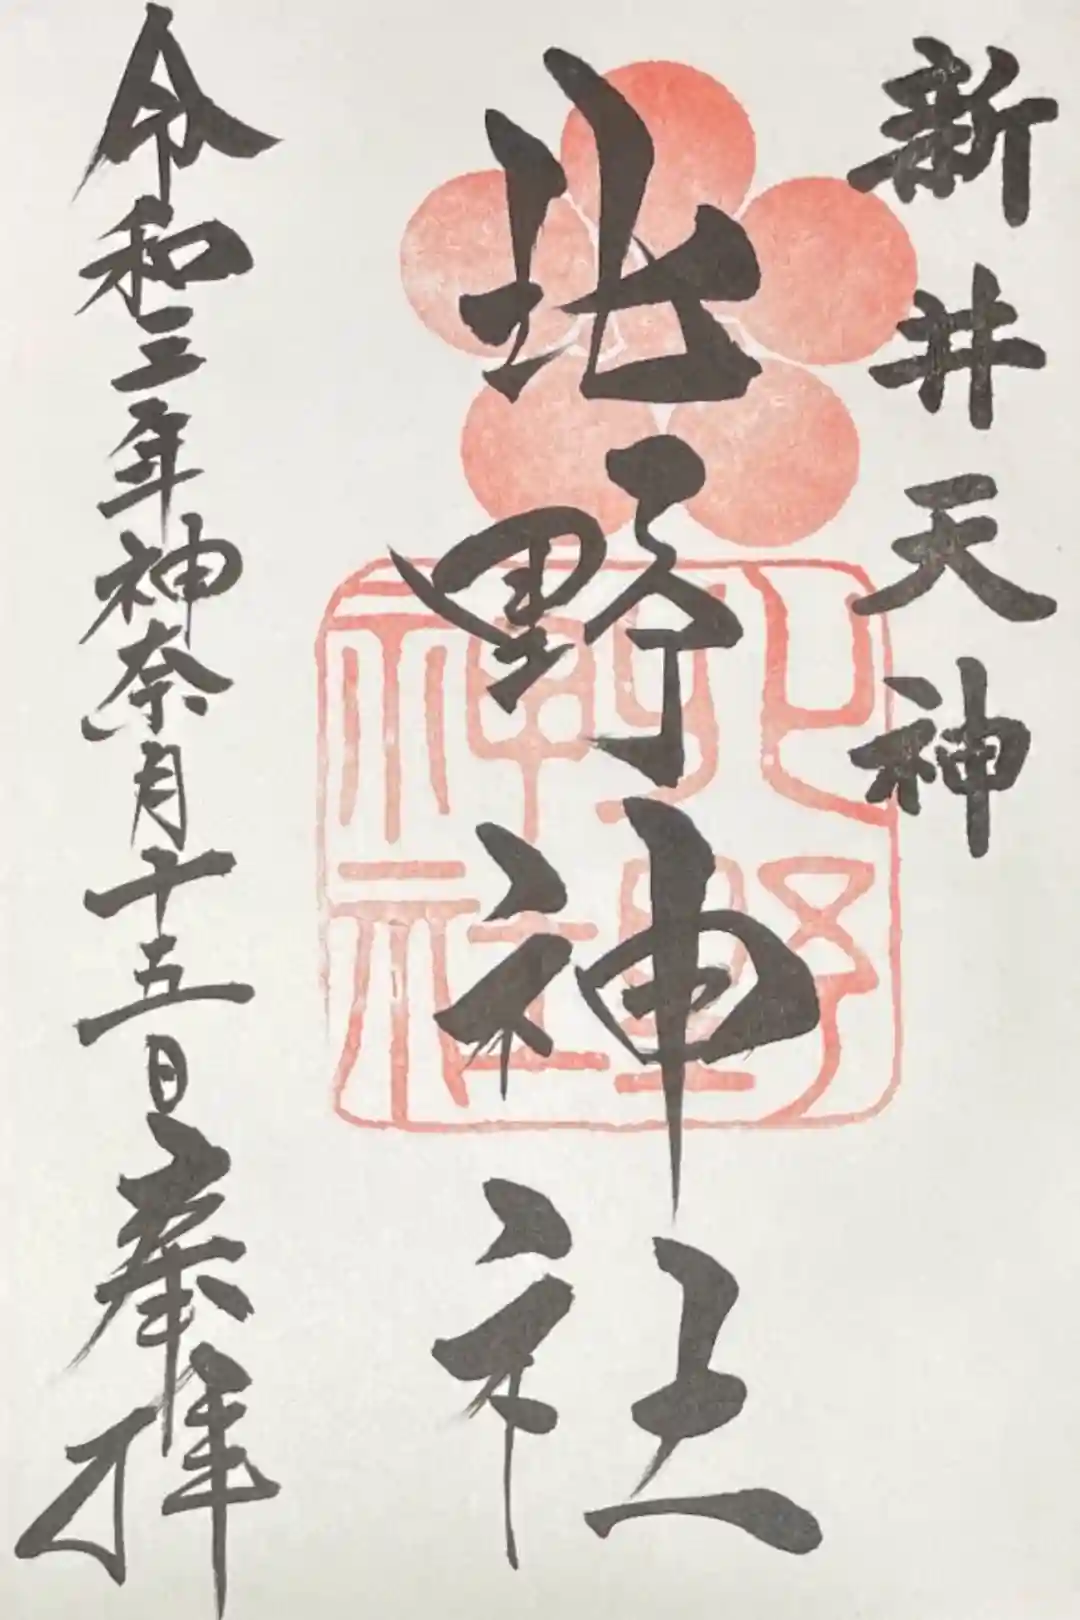 新井天神
北野神社
北野神社
令和三年神奈月十五日奉拝